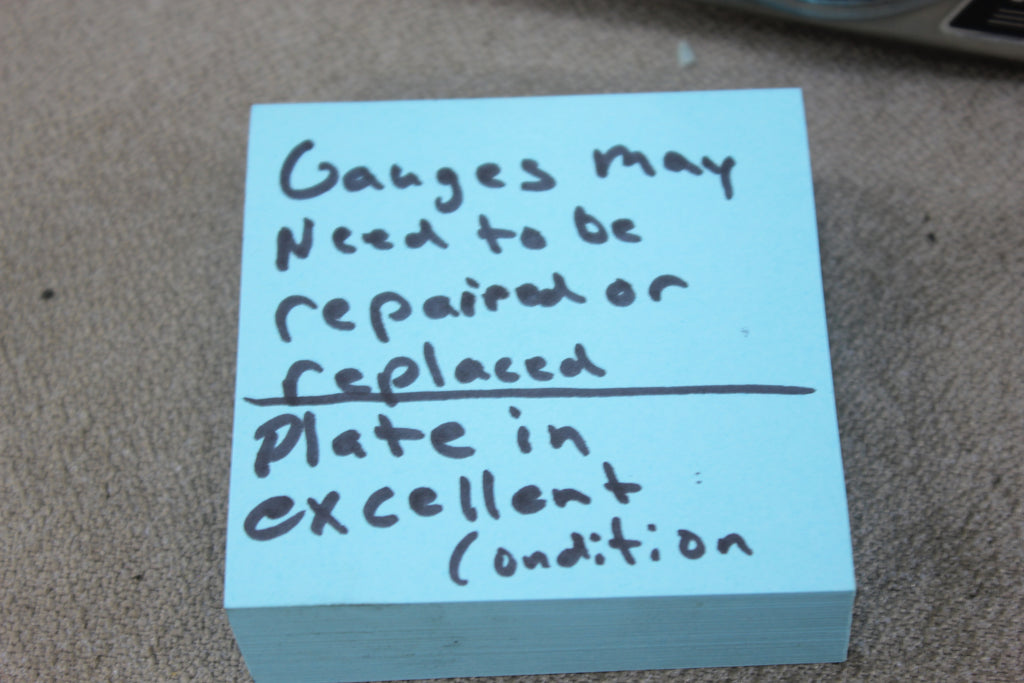 Gauges may
Need to be
repaired or
replaced
Plate in
excellent
Condition